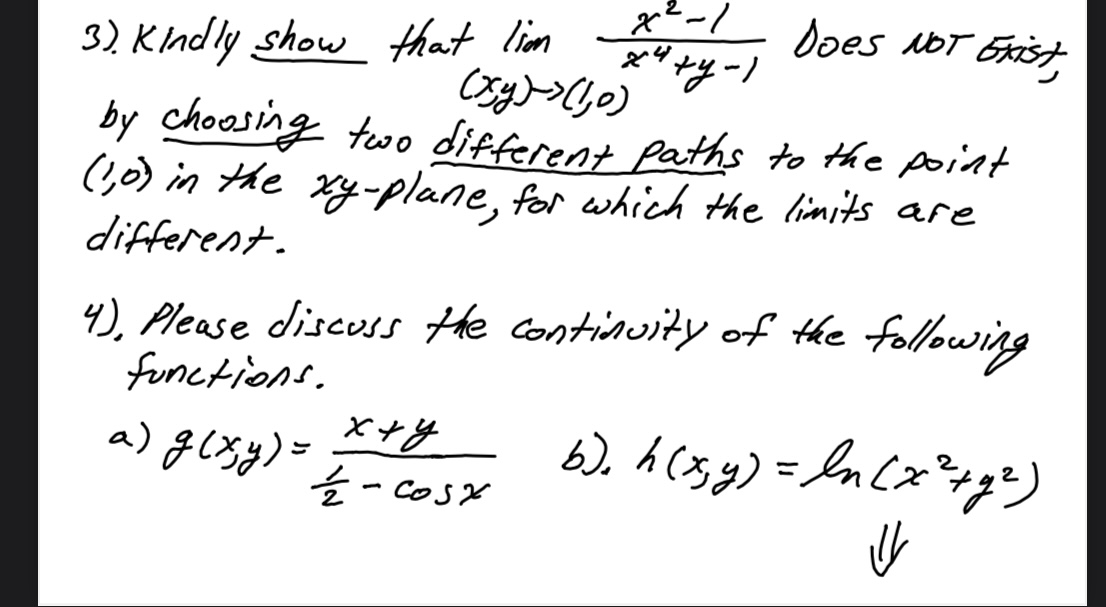 3). Kindly show that lim x²-1 / x⁴+y-1 Does NOT Exist,
(x,y)→(1,0)
by choosing two different paths to the point
(1,0) in the xy-plane, for which the limits are
different.
4). Please discuss the continuity of the following
functions.
a) g(x,y) = x+y / ½ - cosx b). h(x,y) = ln(x²+y²)
⇓